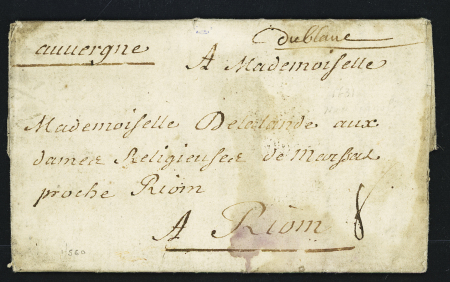 dublanc
auvergne
A Mademoiselle
Mademoiselle Delalande aux
dames Religieuses de Marsat
proche Riom
A Riom 8